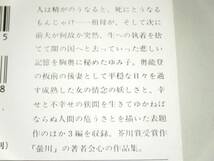 人は精がのうなると、死にとうなる
もんじゃけ――祖母が、そして次に
前夫が何故か突然、生への執着を捨
てて闇の国へと去っていった悲しい
記憶を胸奥に秘めたゆみ子。奥能登
の板前の後妻として平穏な日々を過
す成熟した女の情念の妖しさと、幸
せと不幸せの狭間を生きてゆかねば
ならぬ人間の危うさとを描いた表題
作のほか3編を収録。芥川賞受賞作
「螢川」の著者会心の作品集。
5
8
別)